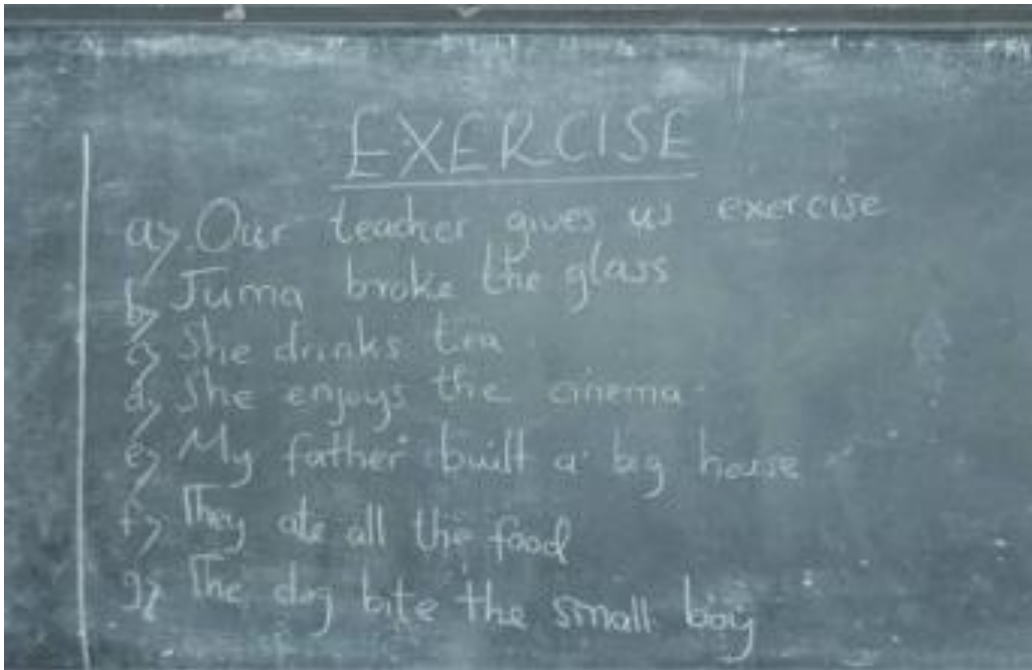 EXERCISE
a) Our teacher gives us exercise
b) Juma broke the glass
c) She drinks tea
d) She enjoys the cinema.
e) My father built a big house
f) They ate all the food
g) The dog bite the small boy